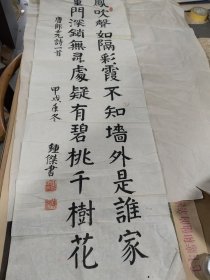 鳳吹聲如隔彩霞不知墻外是誰家
重門深鎖無尋處疑有碧桃千樹花
唐郎士元詩一首
甲戌年冬
鍾傑書